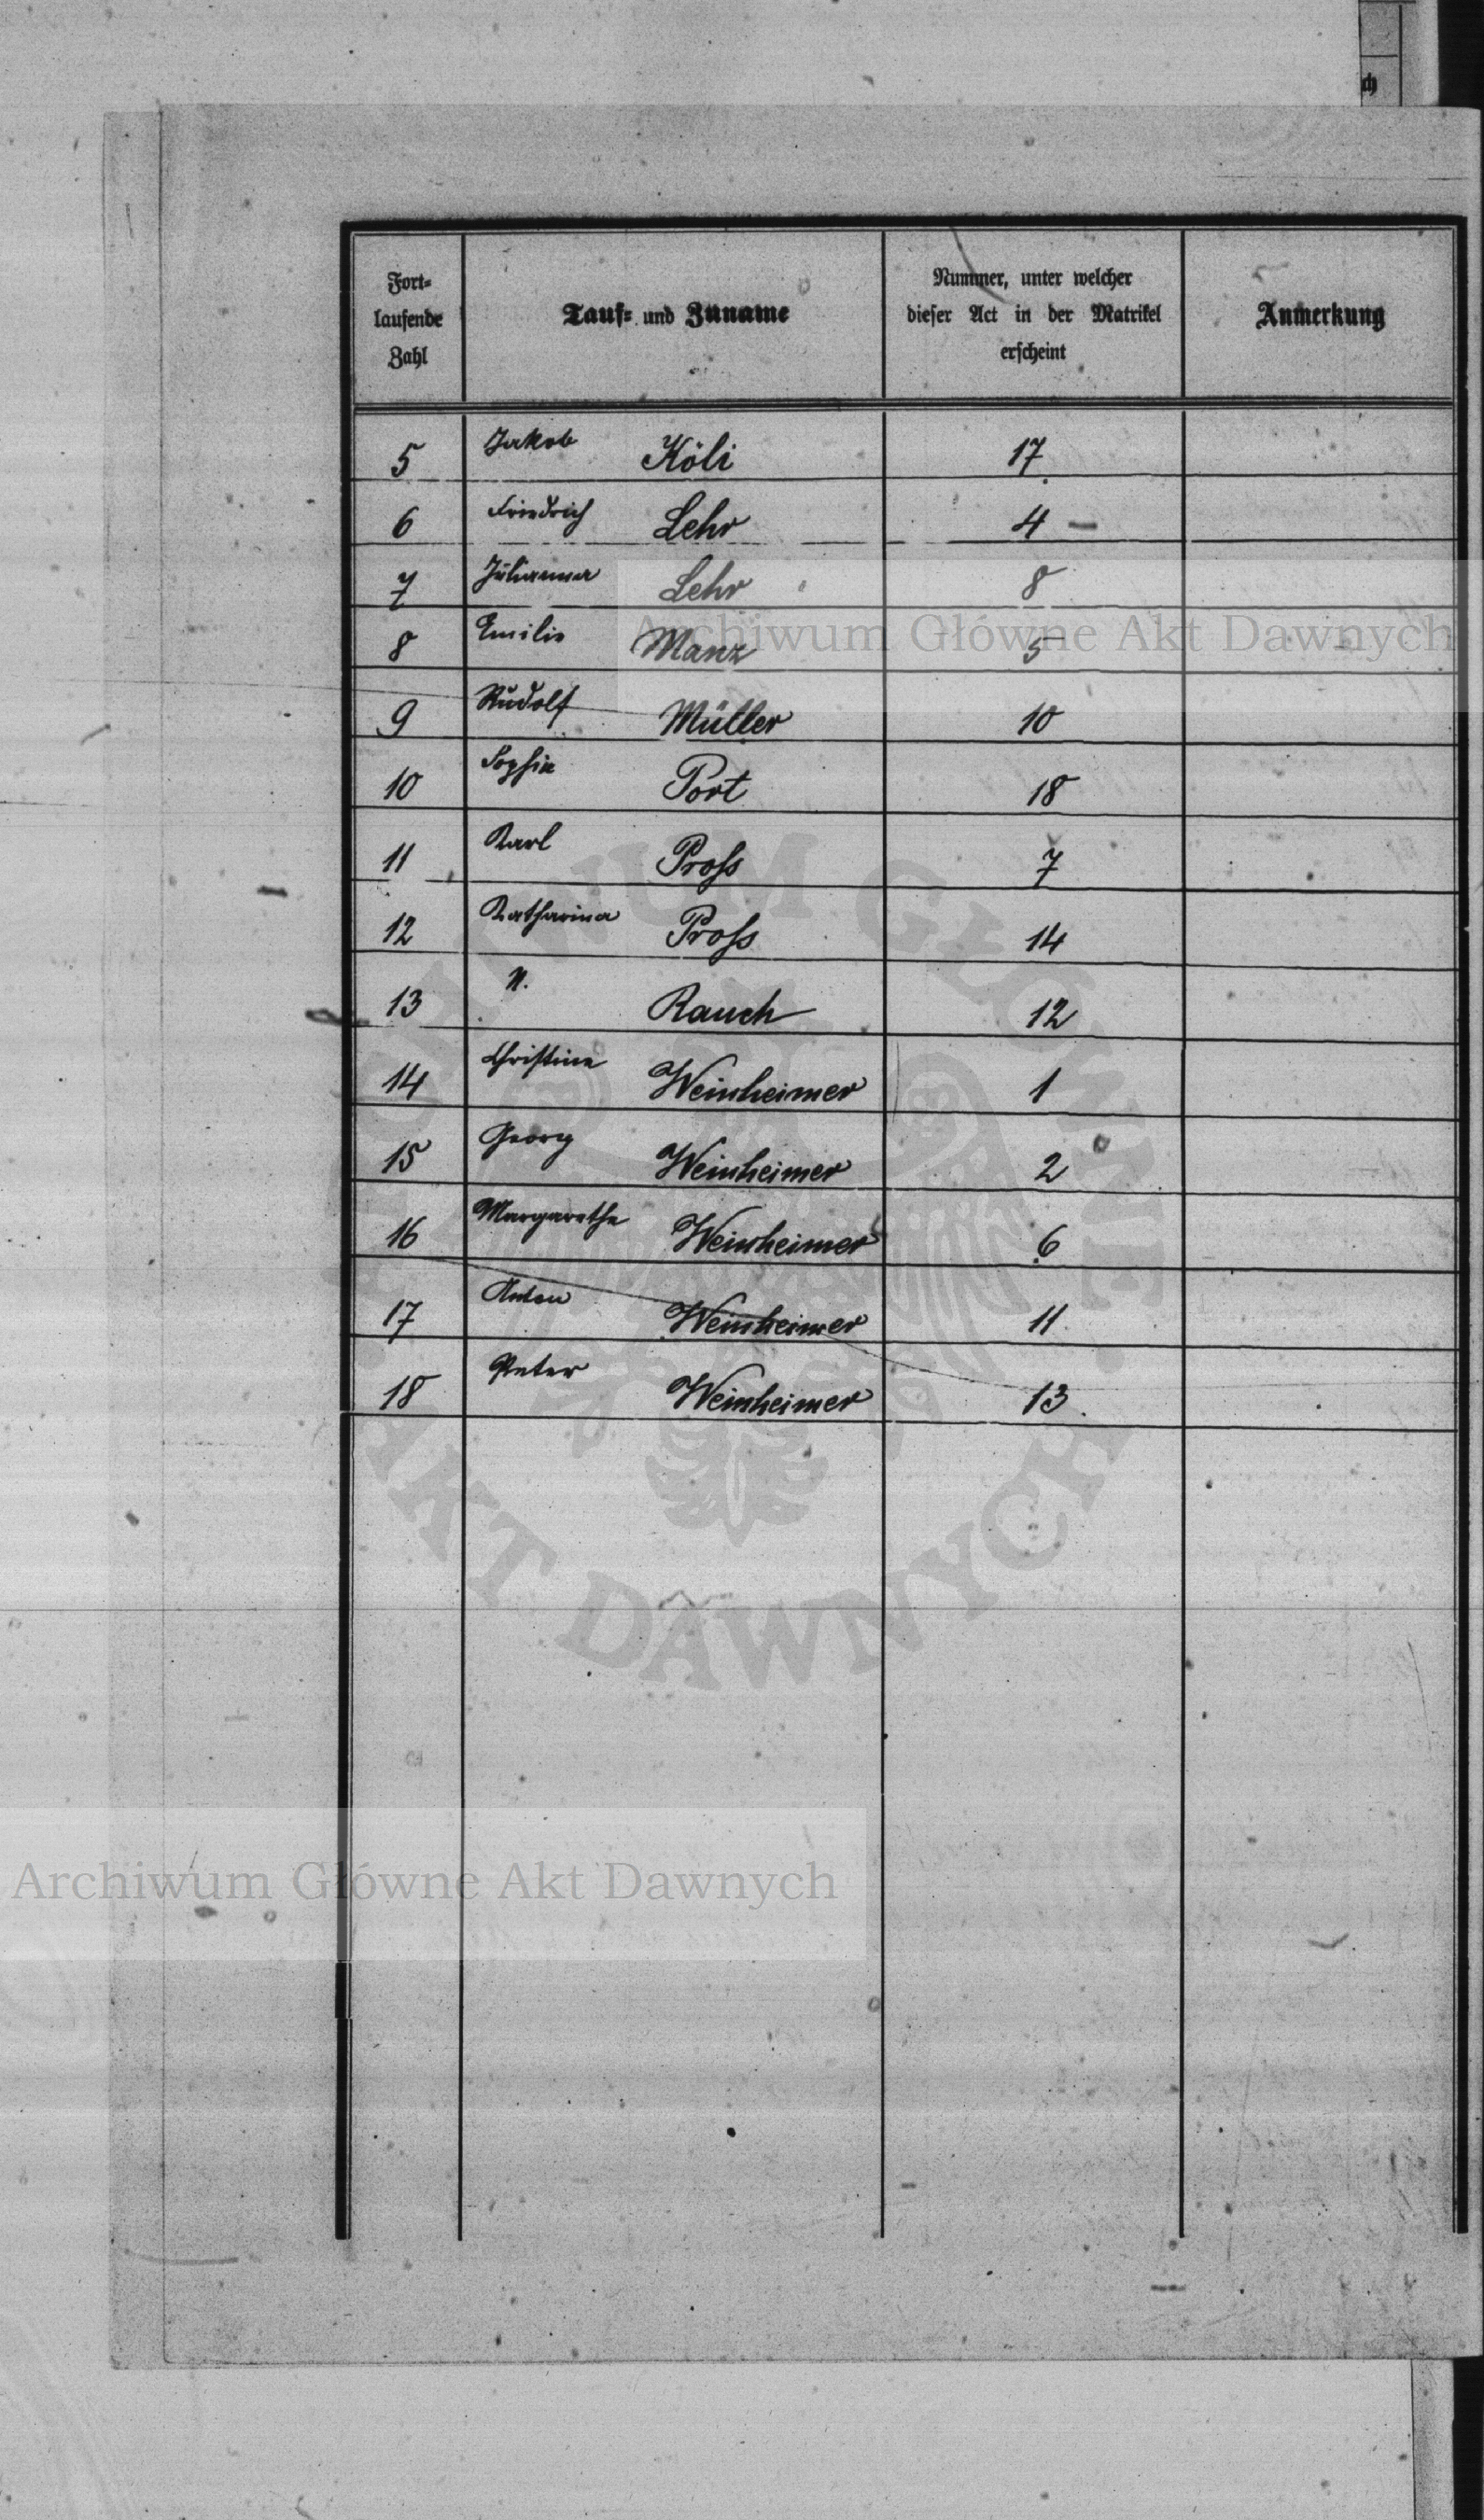 ch
Fort-
laufende
Zahl
Tauf- und Zuname
Nummer, unter welcher
dieser Act in der Matrikel
erscheint
Anmerkung
5 Jakob Köli 17
6 Friedrich Lehr 4 —
7 Julianna Lehr 8
8 Emilie Manz 5
9 Rudolf Müller 10
10 Sophie Port 18
11 Karl Pross 7
12 Katharina Pross 14
13 N. Rauch 12
14 Christine Weinheimer 1
15 Georg Weinheimer 2
16 Margarethe Weinheimer 6
17 Anton Weinheimer 11
18 Peter Weinheimer 13
Archiwum Główne Akt Dawnych
ARCHIWUM GŁÓWNE AKT DAWNYCH
Archiwum Główne Akt Dawnych